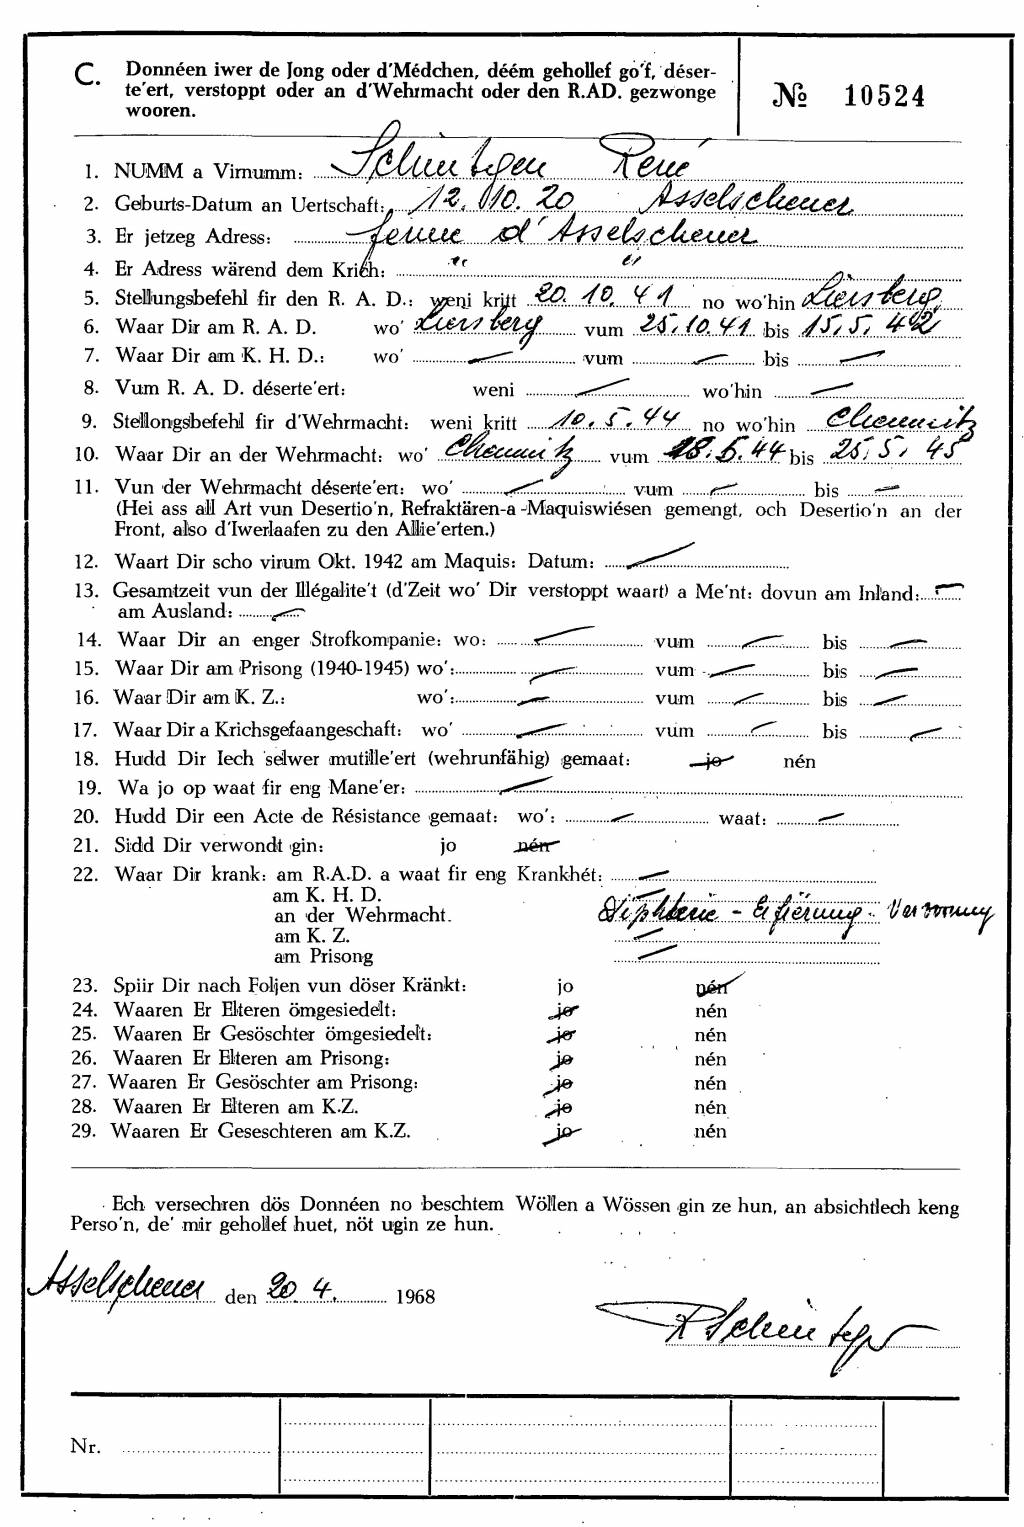 C. Donnéen iwer de Jong oder d'Médchen, déém gehollef go'f, déser-
te'ert, verstoppt oder an d'Wehrmacht oder den R.AD. gezwonge
wooren.
№ 10524
1. NUMM a Virnumm: Schintgen René
2. Geburts-Datum an Uertschaft: 12.10.20 Asselscheuer
3. Er jetzeg Adress: ferme d'Asselscheuer
4. Er Adress wärend dem Krich: " "
5. Stellungsbefehl fir den R. A. D.: weni kritt 20.10.41 no wo'hin Liersberg
6. Waar Dir am R. A. D. wo' Liersberg vum 25.10.41 bis 15.5.42
7. Waar Dir am K. H. D.: wo' — vum — bis —
8. Vum R. A. D. déserte'ert: weni — wo'hin —
9. Stellongsbefehl fir d'Wehrmacht: weni kritt 10.5.44 no wo'hin Chemnitz
10. Waar Dir an der Wehrmacht: wo' Chemnitz vum 18.5.44 bis 25.5.45
11. Vun der Wehrmacht déserte'ert: wo' — vum — bis —
(Hei ass all Art vun Desertio'n, Refraktären-a -Maquiswiésen gemengt, och Desertio'n an der
Front, also d'Iwerlaafen zu den Allie'erten.)
12. Waart Dir scho virum Okt. 1942 am Maquis: Datum: —
13. Gesamtzeit vun der Illégalite't (d'Zeit wo' Dir verstoppt waart) a Me'nt: dovun am Inland: —
am Ausland: —
14. Waar Dir an enger Strofkompanie: wo: — vum — bis —
15. Waar Dir am Prisong (1940-1945) wo': — vum — bis —
16. Waar Dir am K. Z.: wo': — vum — bis —
17. Waar Dir a Krichsgefaangeschaft: wo' — vum — bis —
18. Hudd Dir Iech selwer mutille'ert (wehrunfähig) gemaat: jo nén
19. Wa jo op waat fir eng Mane'er: —
20. Hudd Dir een Acte de Résistance gemaat: wo': — waat: —
21. Sidd Dir verwondt gin: jo nén
22. Waar Dir krank: am R.A.D. a waat fir eng Krankhét: —
am K. H. D. —
an der Wehrmacht. Diphterie - Erfierung -
am K. Z. —
am Prisong —
23. Spiir Dir nach Foljen vun döser Kränkt: jo nén
24. Waaren Er Elteren ömgesiedelt: jo nén
25. Waaren Er Gesöschter ömgesiedelt: jo nén
26. Waaren Er Elteren am Prisong: jo nén
27. Waaren Er Gesöschter am Prisong: jo nén
28. Waaren Er Elteren am K.Z. jo nén
29. Waaren Er Geseschteren am K.Z. jo nén
Ech versechren dös Donnéen no beschtem Wöllen a Wössen gin ze hun, an absichtlech keng
Perso'n, de' mir gehollef huet, nöt ugin ze hun.
Asselscheuer den 20.4. 1968
R Schintgen
Nr.